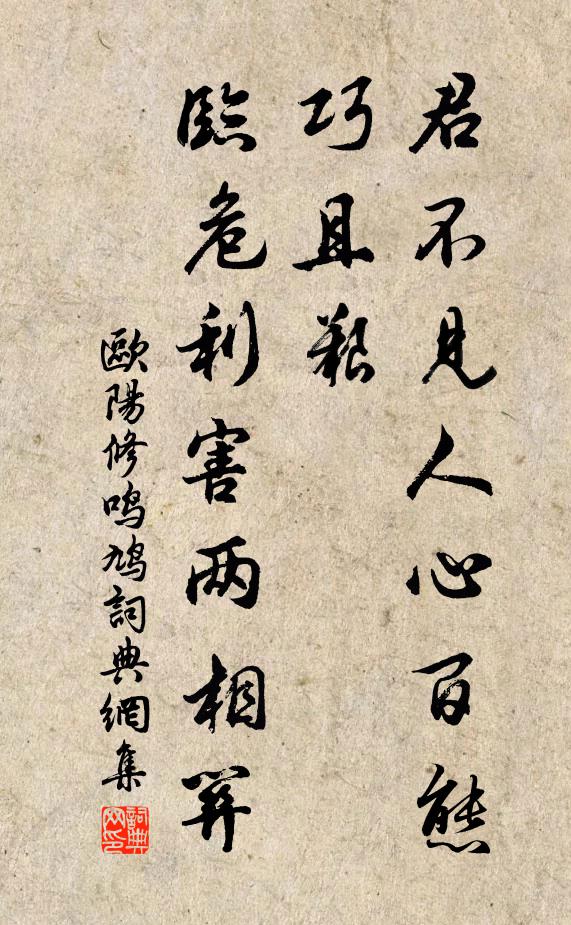 君不見人心百態
巧且艱
臨危利害两相關
歐陽修鳴鳩詞典網集
詞典网印